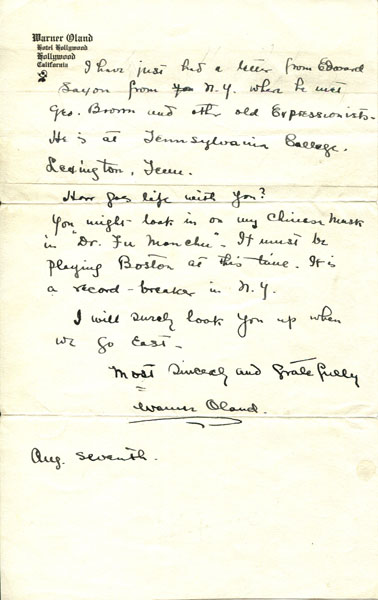 Warner Oland
Hotel Hollywood
Hollywood
California
2
I have just had a letter from Edward
Saxon from N.Y. where he met
Geo. Brown and other old Expressionists.
He is at Tennsylvania College.
Lexington, Tenn.
How goes life with you?
You might look in on my Chinese Mask
in "Dr. Fu Manchu". It must be
playing Boston at this time. It is
a record-breaker in N.Y.
I will surely look you up when
we go East.
Most Sincerely and Gratefully
Warner Oland.
Aug. Seventh.